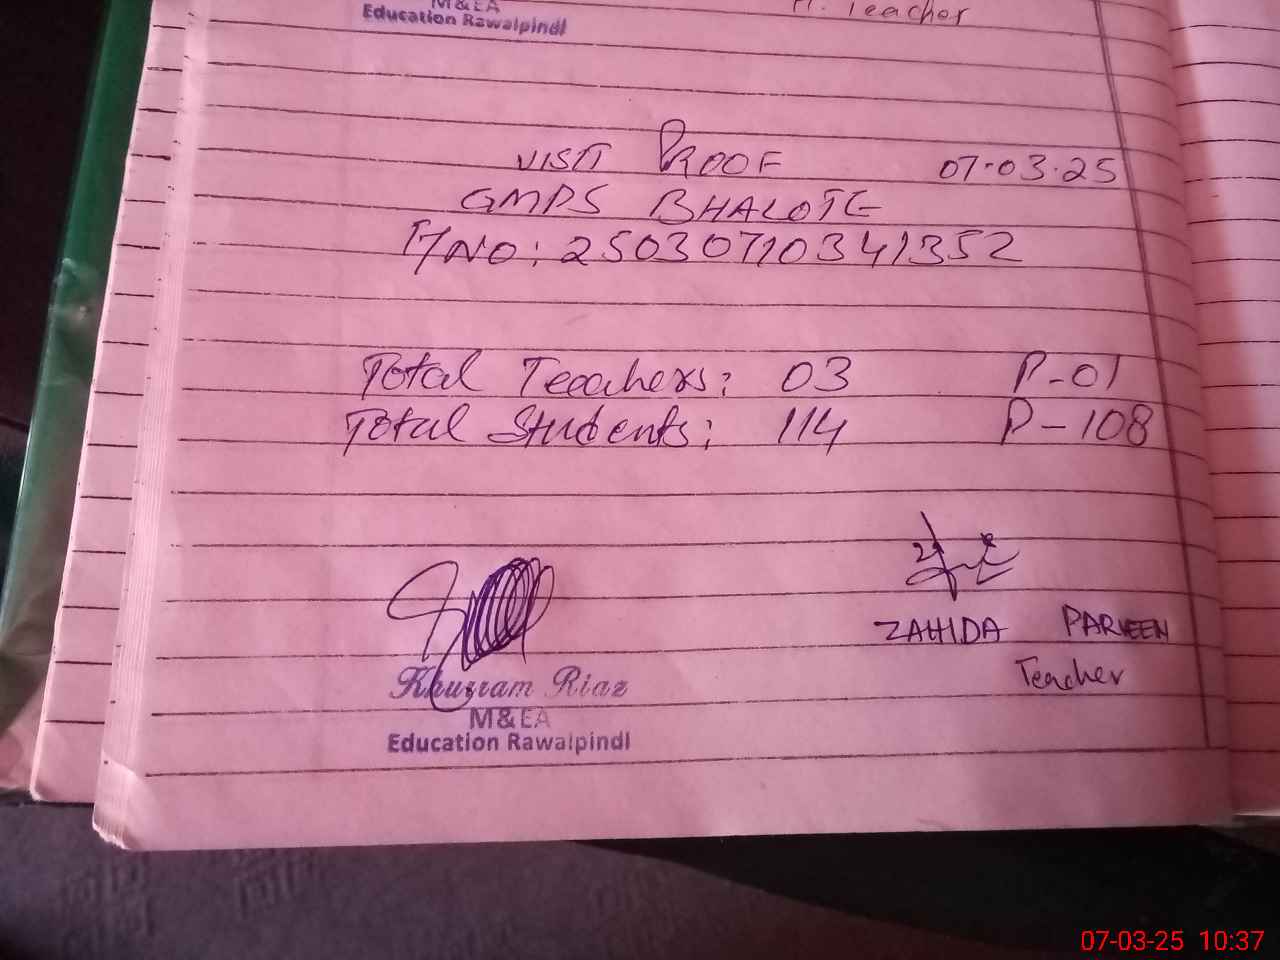 M&EA
Education Rawalpindi
H. Teacher
VISIT PROOF 07-03-25
GMPS BHALOTE
T/NO: 25030710341352
Total Teachers: 03 P-01
Total Students: 114 P-108
Khurram Riaz
M&EA
Education Rawalpindi
ZAHIDA PARVEEN
Teacher
07-03-25 10:37